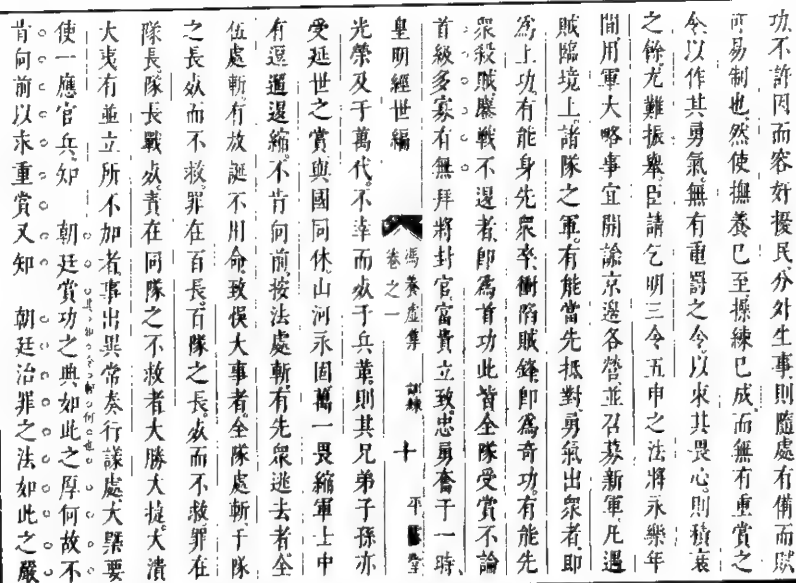 功不許因而容奸擾民分外生事則隨處有備而賊
可易制也然使撫養已至操練已成而無有重賞之
令以作其勇氣無有重罰之令以來其畏心則積衰
之餘尤難振舉臣請乞明三令五申之法將永樂年
間用軍大略事宜開諭京邊各營並召募新軍凡遇
賊臨境上諸隊之軍有能當先抵對勇氣出衆者即
為上功有能身先衆卒衝陷賊鋒即為奇功有能先
衆殺賊鏖戰不退者即為首功此皆全隊受賞不論
首級多寡有無拜將封官富貴立致忠勇奮于一時
皇明經世編
馮養虛集 訓練
卷之一
十
平露堂
光榮及于萬代不幸而歿于兵革則其兄弟子孫亦
受延世之賞與國同休山河永固萬一畏縮軍士中
有逗遛退縮不肯向前按法處斬有先衆逃去者全
伍處斬有放誕不用命致悞大事者全隊處斬于隊
之長歿而不救罪在百長百隊之長歿而不救罪在
隊長隊長戰歿責在同隊之不救者大勝大捷大潰
大夷有並立所不加者事出異常奏行議處大槩要
使一應官兵知 朝廷賞功之典如此之厚何故不
肯向前以求重賞又知 朝廷治罪之法如此之嚴